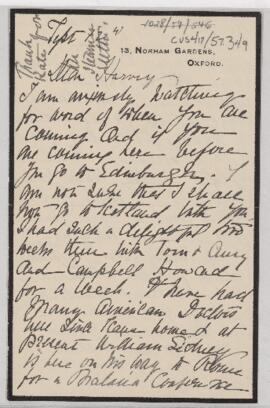 Thank
Kate for
her
Steamer
letter.
1028/59/546
CUS417/57.349
Sept
13, NORHAM GARDENS,
OXFORD.
Harvey
I am anxiously watching
for word of when you are
coming and if you
are coming here before
you go to Edinburgh. I
am not sure that I shall
not go to Scotland with you
I had such a delightful two
weeks there with Tom & Amy
and Campbell Howard
for a week. I have had
many American Doctors
here since I came home & at
present William Sidney
is here on his way to Rome
for a Malaria Conference